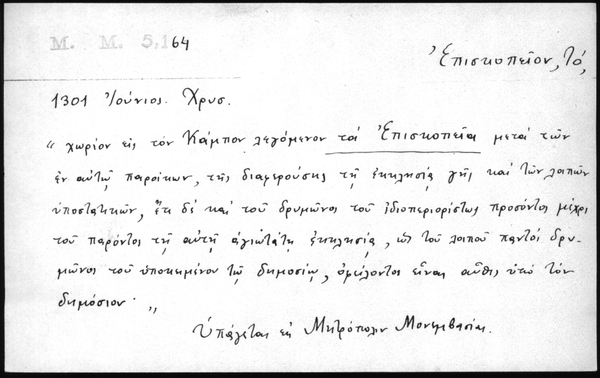 Μ. Μ. 5,164
Ἐπισκοπεῖον, τό,
1301 Ἰούνιος. Χρυσ.
„ χωρίον εἰς τὸν Κάμπον λεγόμενον τὰ Ἐπισκοπεῖα μετὰ τῶν
ἐν αὐτῷ παροίκων, τῆς διαφερούσης τῇ ἐκκλησίᾳ γῆς καὶ τῶν λοιπῶν
ὑποστατικῶν, ἔτι δὲ καὶ τοῦ δρυμῶνος τοῦ ἰδιοπεριορίστως προσόντος μέχρι
τοῦ παρόντος τῇ αὐτῇ ἁγιωτάτῃ ἐκκλησίᾳ, ὡς τοῦ λοιποῦ παντὸς δρυ-
μῶνος τοῦ ὑποκειμένου τῷ δημοσίῳ, ὀφείλοντος εἶναι αὖθις ὑπὸ τὸν
δημόσιον· „
Ὑπάγεται εἰς Μητρόπολιν Μονεμβασίας.